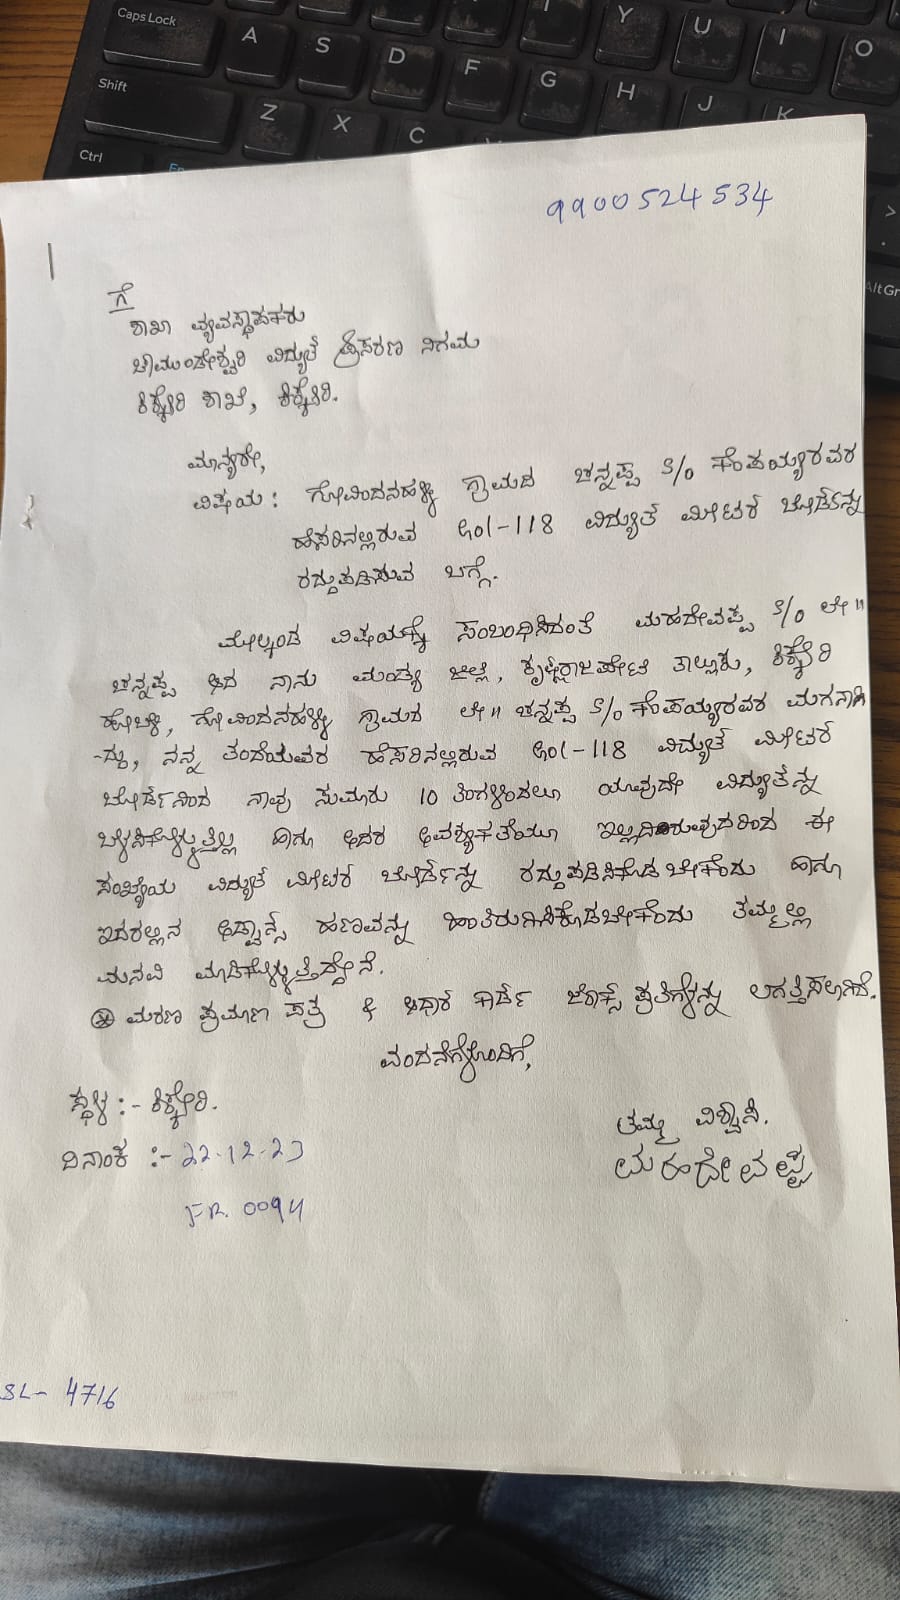 9900524534
ಗೆ
ಶಾಖಾ ವ್ಯವಸ್ಥಾಪಕರು
ಚಾಮುಂಡೇಶ್ವರಿ ವಿದ್ಯುತ್ ಪ್ರಸರಣ ನಿಗಮ
ಕಿಕ್ಕೇರಿ ಶಾಖೆ, ಕಿಕ್ಕೇರಿ.
ಮಾನ್ಯರೇ,
ವಿಷಯ : ಗೋವಿಂದನಹಳ್ಳಿ ಗ್ರಾಮದ ಚನ್ನಪ್ಪ S/o ಕೆಂಪಯ್ಯರವರ
ಹೆಸರಿನಲ್ಲಿರುವ Gol-118 ವಿದ್ಯುತ್ ಮೀಟರ್ ಬೋರ್ಡನ್ನು
ರದ್ದುಪಡಿಸುವ ಬಗ್ಗೆ.
ಮೇಲ್ಕಂಡ ವಿಷಯಕ್ಕೆ ಸಂಬಂಧಿಸಿದಂತೆ ಮಹದೇವಪ್ಪ S/o ಲೇ॥
ಚನ್ನಪ್ಪ ಆದ ನಾನು ಮಂಡ್ಯ ಜಿಲ್ಲೆ, ಕೃಷ್ಣರಾಜಪೇಟೆ ತಾಲ್ಲೂಕು, ಕಿಕ್ಕೇರಿ
ಹೋಬಳಿ, ಗೋವಿಂದನಹಳ್ಳಿ ಗ್ರಾಮದ ಲೇ॥ ಚನ್ನಪ್ಪ S/o ಕೆಂಪಯ್ಯರವರ ಮಗನಾಗಿ
-ದ್ದು, ನನ್ನ ತಂದೆಯವರ ಹೆಸರಿನಲ್ಲಿರುವ Gol-118 ವಿದ್ಯುತ್ ಮೀಟರ್
ಬೋರ್ಡ್‌ನಿಂದ ನಾವು ಸುಮಾರು 10 ತಿಂಗಳಿಂದಲೂ ಯಾವುದೇ ವಿದ್ಯುತನ್ನು
ಬಳಸಿಕೊಳ್ಳುತ್ತಿಲ್ಲ ಹಾಗೂ ಅದರ ಅವಶ್ಯಕತೆಯೂ ಇಲ್ಲದಿರುವುದರಿಂದ ಈ
ಸಂಖ್ಯೆಯ ವಿದ್ಯುತ್ ಮೀಟರ್ ಬೋರ್ಡನ್ನು ರದ್ದುಪಡಿಸಿಕೊಡಬೇಕೆಂದು ಹಾಗೂ
ಇದರಲ್ಲಿನ ಅಡ್ವಾನ್ಸ್ ಹಣವನ್ನು ಹಿಂತಿರುಗಿಸಿಕೊಡಬೇಕೆಂದು ತಮ್ಮಲ್ಲಿ
ಮನವಿ ಮಾಡಿಕೊಳ್ಳುತ್ತಿದ್ದೇನೆ.
ಮರಣ ಪ್ರಮಾಣ ಪತ್ರ & ಆಧಾರ್ ಕಾರ್ಡ್ ಜೆರಾಕ್ಸ್ ಪ್ರತಿಗಳನ್ನು ಲಗತ್ತಿಸಲಾಗಿದೆ.
ವಂದನೆಗಳೊಂದಿಗೆ,
ಸ್ಥಳ :- ಕಿಕ್ಕೇರಿ.
ತಮ್ಮ ವಿಶ್ವಾಸಿ.
ದಿನಾಂಕ :- 22-12-23
ಮಹದೇವಪ್ಪ
FR. 0094
SL- 4716
Caps Lock A S D F G H J K
Shift Z X C
Y U I O
Ctrl
AltGr